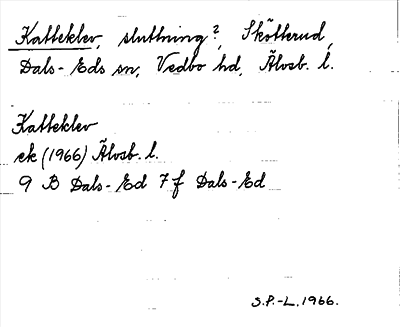 Katteklev, sluttning?, Skötterud,
Dals-Eds sn, Vedbo hd, Älvsb. l.
Katteklev
ek (1966) Älvsb. l.
9 B Dals-Ed 7 f Dals-Ed
S.P.-L. 1966.